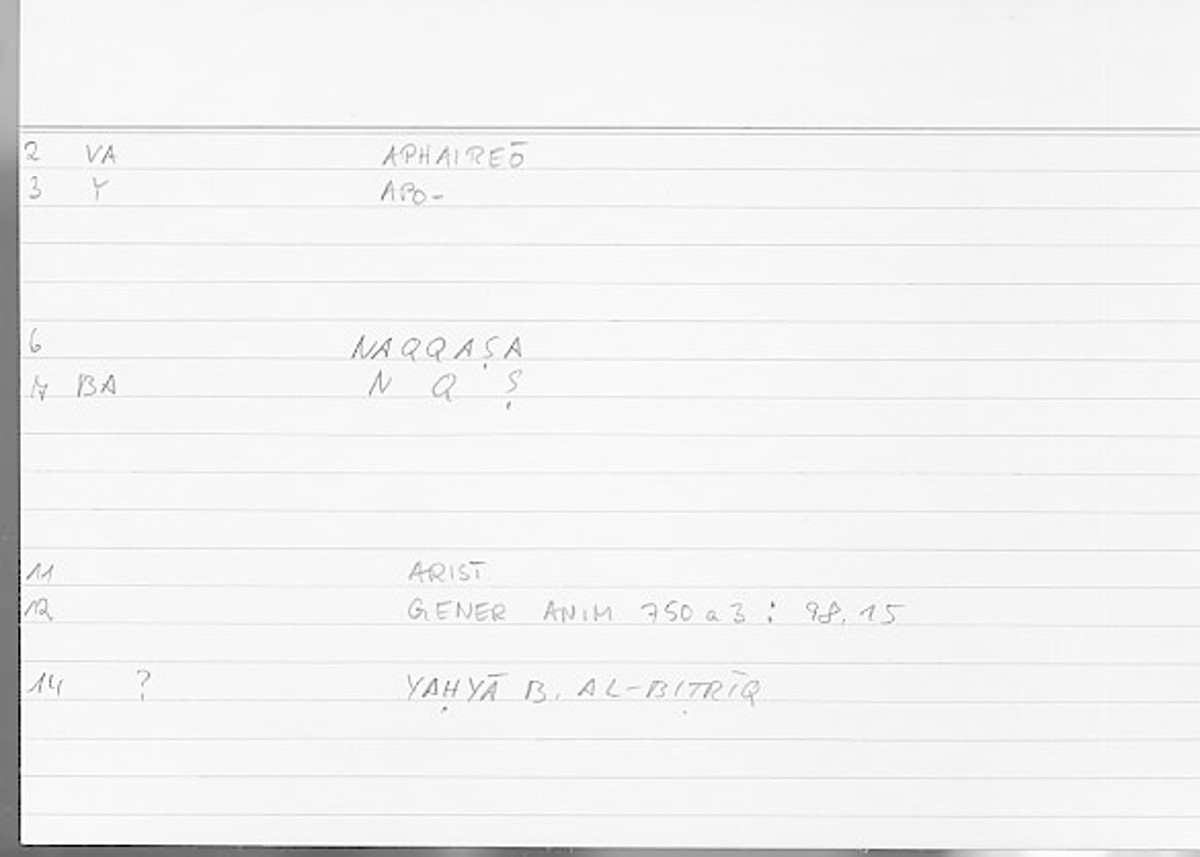 2 VA APHAIREŌ
3 Y APO-
6 NAQQAṢA
7 BA N Q Ṣ
11 ARIST
12 GENER ANIM 750 a 3 : 98.15
14 ? YAḤYĀ B. AL-BIṬRĪQ